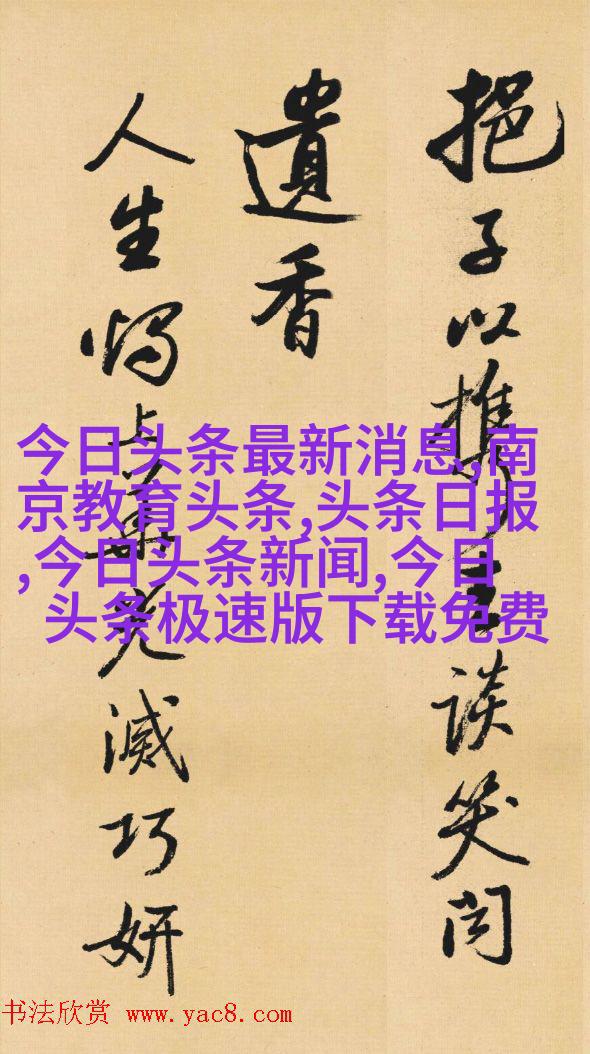 挹子以携談笑
遺香
人生上滅巧妍
今日头条最新消息,南
京教育头条,头条日报
,今日头条新闻,今日
头条极速版下载免费
书法欣赏 www.yac8.com